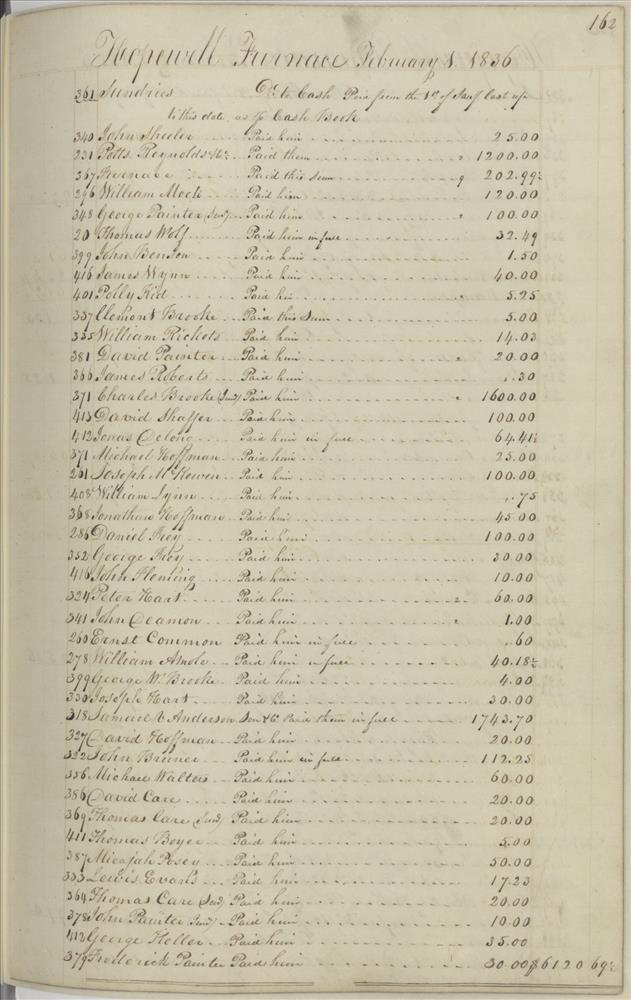 162
Hopewell Furnace February 1. 1836
361 Sundries Dr. to Cash Paid from the 1st of Jany last up
to this date as pr Cash Book
340 John Sheeler Paid him 25.00
231 Potts Reynolds & Co. Paid them 1200.00
367 Furnace Paid this sum 202.99½
296 William Mock Paid him 120.00
348 George Painter (Sen) Paid him 100.00
20 Thomas Wolf Paid him in full 32.49
399 John Benson Paid him 1.50
416 James Wynn Paid him 40.00
401 Polly Kid Paid her 5.25
357 Clement Brooke Paid this sum 5.00
335 William Rickets Paid him 14.03
381 David Painter Paid him 20.00
366 James Roberts Paid him .30
371 Charles Brooke (Jun) Paid him 1600.00
413 David Shaffer Paid him 100.00
412 Jonas Delong Paid him in full 64.41½
371 Michael Hoffman Paid him 25.00
261 Joseph McKewen Paid him 100.00
408 William Lynn Paid him .75
368 Jonathan Hoffman Paid him 45.00
286 Daniel Foey Paid him 100.00
352 George Foey Paid him 30.00
416 John Fleming Paid him 10.00
324 Peter Hart Paid him 60.00
341 John Deamon Paid him 1.00
260 Ernst Common Paid him in full .60
278 William Amole Paid him in full 40.18½
399 George W. Brooke Paid him 4.00
330 Joseph Hart Paid him 30.00
318 Samuel Anderson Son & Co Paid them in full 1743.70
327 David Hoffman Paid him 20.00
322 John Bruner Paid him in full 112.25
356 Michael Walters Paid him 60.00
386 David Care Paid him 20.00
369 Thomas Care (Jun) Paid him 20.00
411 Thomas Boyer Paid him 5.00
387 Micajah Posey Paid him 50.00
333 Lewis Evans Paid him 17.23
364 Thomas Care (Sen) Paid him 20.00
378 John Painter (Jun) Paid him 10.00
412 George Holler Paid him 35.00
379 Frederick Painter Paid him 30.00 $6120 69½